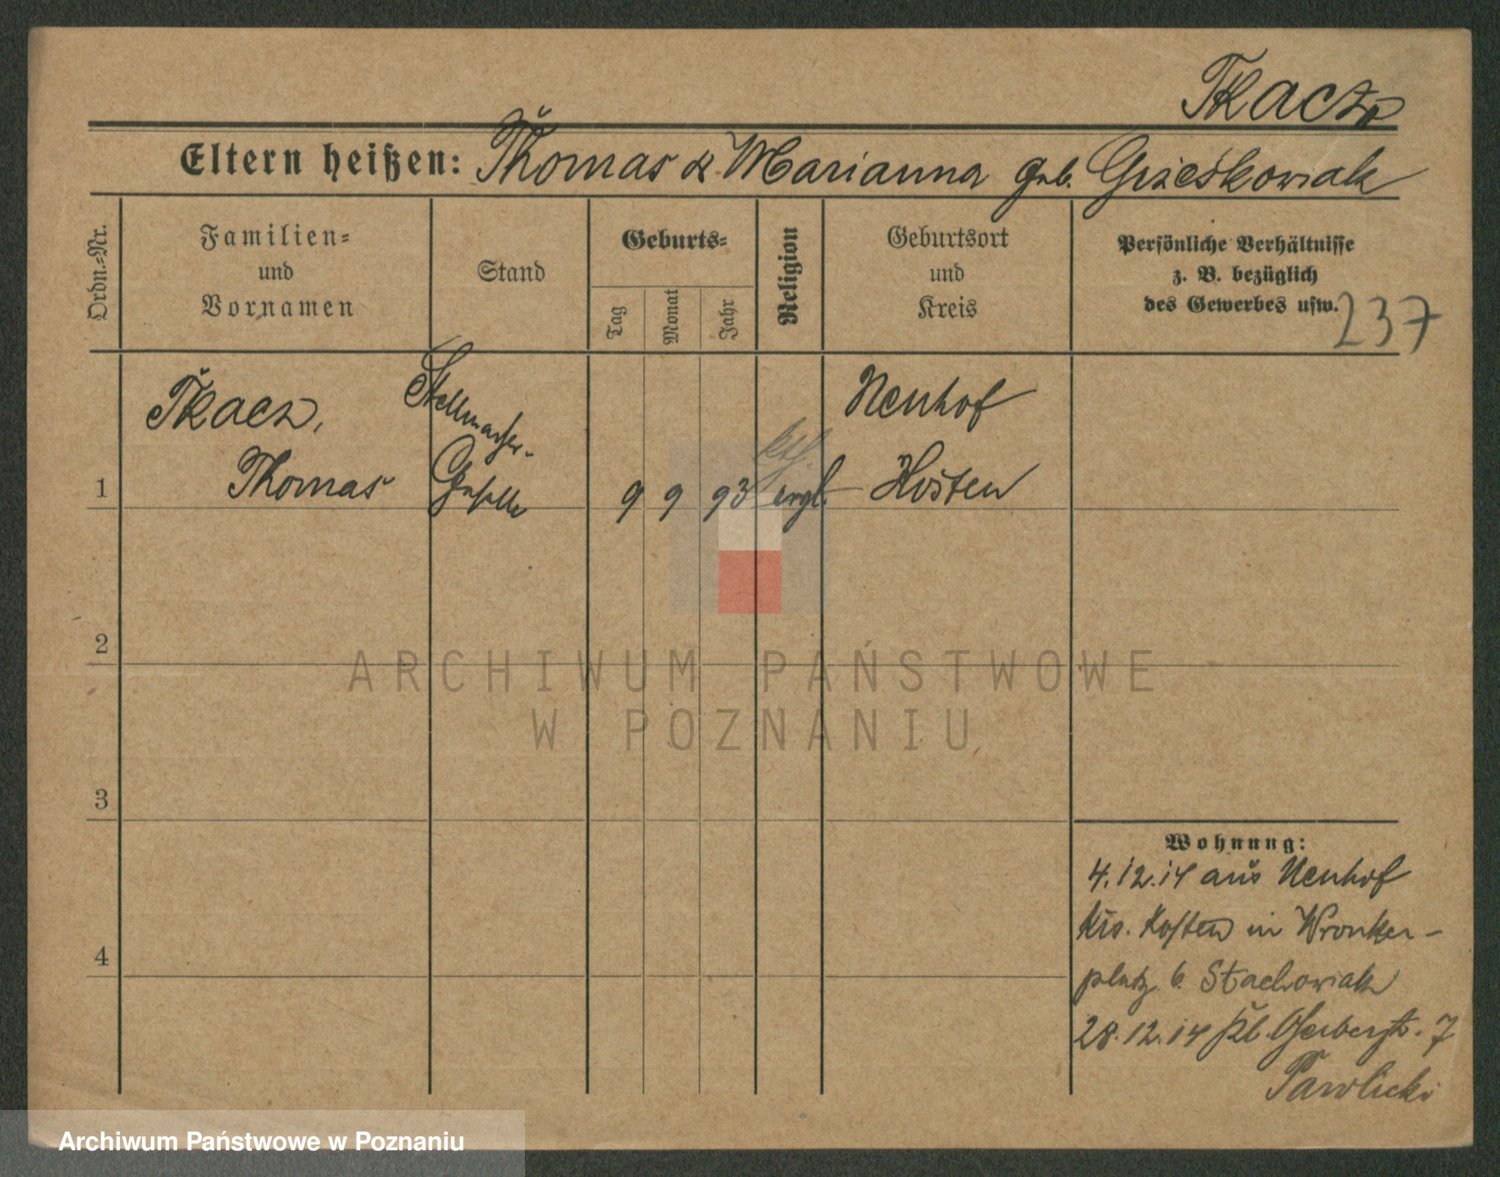 Tkacz
Eltern heißen: Thomas & Marianna geb. Grześkowiak
Ordn.-Nr.
Familien-
und
Vornamen
Stand
Geburts-
Tag
Monat
Jahr
Religion
Geburtsort
und
Kreis
Persönliche Verhältnisse
z. B. bezüglich
des Gewerbes usw.
237
Tkacz,
Thomas
Stellmacher-
Geselle
1
9 9 93
kth.
Neuhof
Kosten
2
3
4
Wohnung:
4.12.14 aus Neuhof
Krs. Kosten in Wronker-
platz 6. Stachowiak
28.12.14 Kl. Gerberstr. 7
Pawlicki
ARCHIWUM PAŃSTWOWE
W POZNANIU
Archiwum Państwowe w Poznaniu